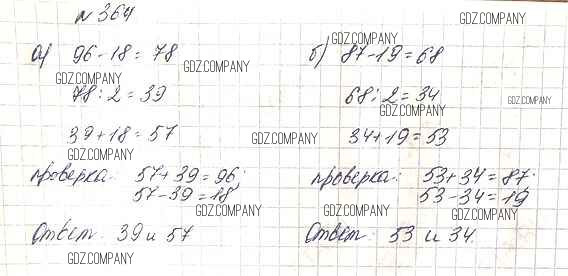 №364
GDZ.COMPANY
а) 96-18=78
GDZ.COMPANY
78:2=39
GDZ.COMPANY
39+18=57
GDZ.COMPANY
проверка: 57+39=96;
57-39=18
GDZ.COMPANY
Ответ: 39 и 57
GDZ.COMPANY
GDZ.COMPANY
б) 87-19=68
68:2=34
GDZ.COMPANY
GDZ.COMPANY
34+19=53
GDZ.COMPANY
проверка: 53+34=87;
53-34=19
GDZ.COMPANY
GDZ.COMPANY
Ответ: 53 и 34.